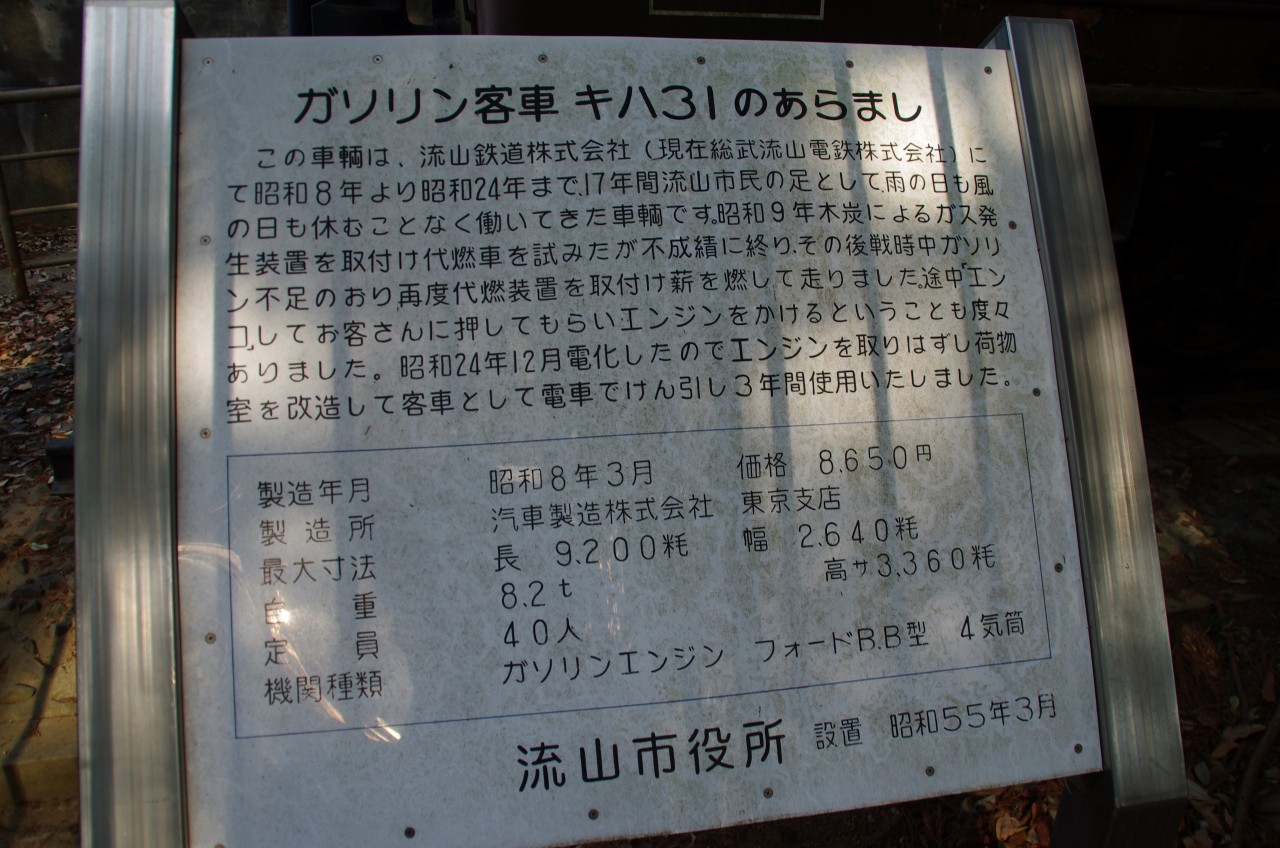 ガソリン客車 キハ31のあらまし
この車輌は、流山鉄道株式会社(現在総武流山電鉄株式会社)に
て昭和8年より昭和24年まで、17年間流山市民の足として、雨の日も風
の日も休むことなく働いてきた車輌です。昭和9年木炭によるガス発
生装置を取付け代燃車を試みたが不成績に終り、その後戦時中ガソリ
ン不足のおり再度代燃装置を取付け薪を燃して走りました。途中“エン
コ„してお客さんに押してもらいエンジンをかけるということも度々
ありました。昭和24年12月電化したのでエンジンを取りはずし荷物
室を改造して客車として電車でけん引し3年間使用いたしました。
製造年月 昭和8年3月 価格 8,650円
製造所 汽車製造株式会社 東京支店
最大寸法 長 9,200粍 幅 2,640粍 高サ3,360粍
自重 8.2t
定員 40人
機関種類 ガソリンエンジン フォードB.B型 4気筒
流山市役所 設置 昭和55年3月